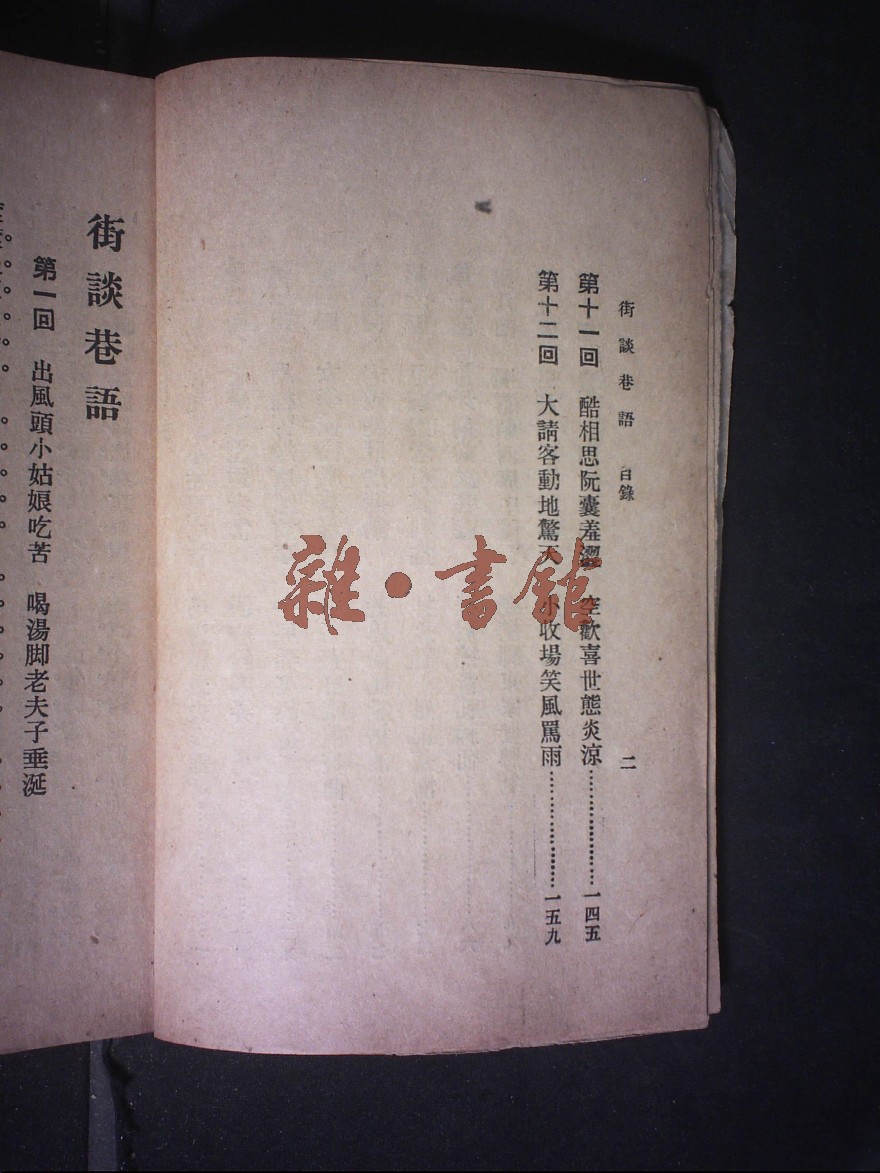 街談巷語 目錄 二
第十一回 酷相思阮囊羞澀 空歡喜世態炎涼……………………一四五
第十二回 大請客動地驚天 小收場笑風罵雨……………………一五九
街談巷語
第一回 出風頭小姑娘吃苦 喝湯脚老夫子垂涎
雜·書館